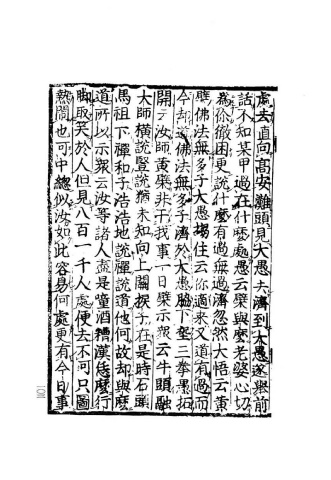 處去直向高安灘頭見大愚去濟到大愚遂舉前
話不知某甲過在什麽處愚云檗與麽老婆心切
為你徹困更說什麽有過無過濟忽然大悟云黃
檗佛法無多子大愚搊住云你適來又道有過而
今却道佛法無多子濟於大愚脇下築三拳愚拓
開云汝師黃檗非干我事一日檗示眾云牛頭融
大師橫說豎說猶未知向上關捩子在是時石頭
馬祖下禪和子浩浩地說禪說道他何故却與麽
道所以示眾云汝等諸人盡是噇酒糟漢恁麽行
脚取笑於人但見八百一千人處便去不可只圖
熱閙也可中總似汝如此容易何處更有今日事